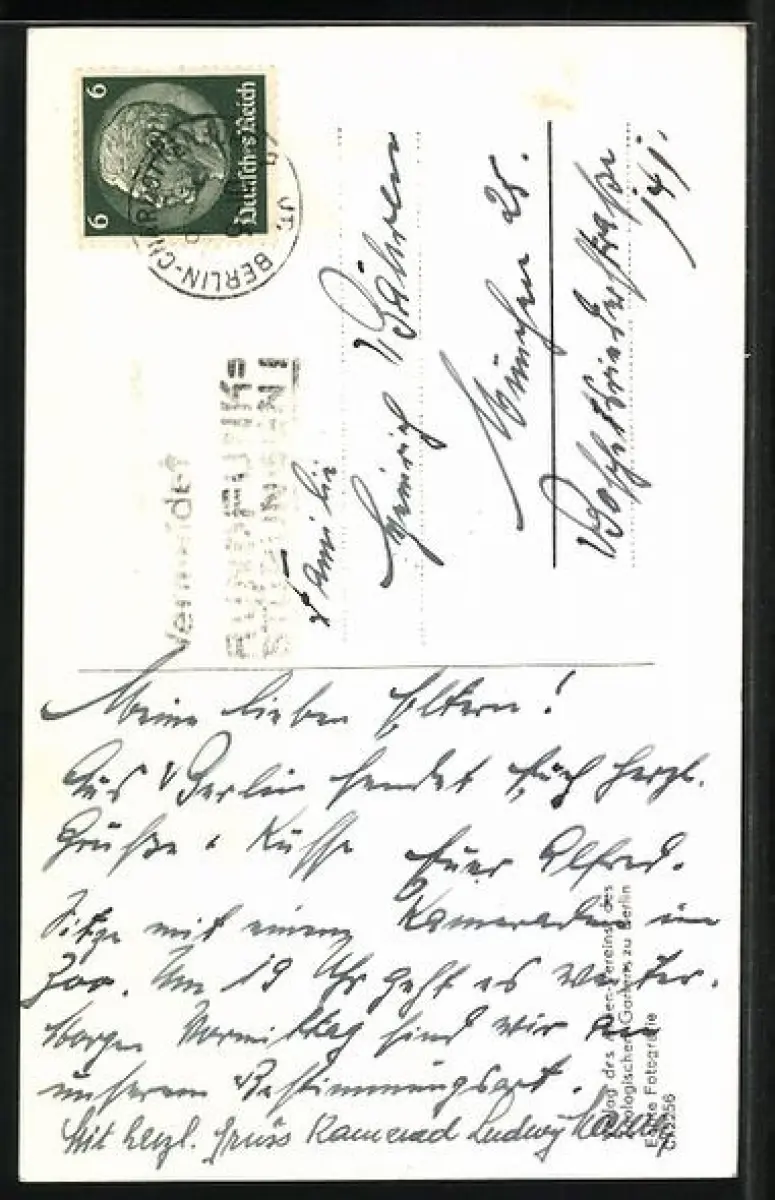 Meine lieben Eltern!
Aus Berlin sendet Euch herzl.
Grüße u Küsse Euer Alfred.
Sitze mit einem Kameraden im
Zoo. Um 19 Uhr geht es weiter.
Morgen Vormittag sind wir an
unserem Bestimmungsort.
Mit herzl. Gruss Kamerad Ludwig
6 6
Deutsches Reich
BERLIN-CHARLOTTENBURG
Vermeidet
RUNDFUNK-
STÖRUNGEN!
Familie
Heinrich Bähren
München 25.
14/I.
Verlag des Aktien-Vereins des
Zoologischen Gartens zu Berlin
Echte Fotografie